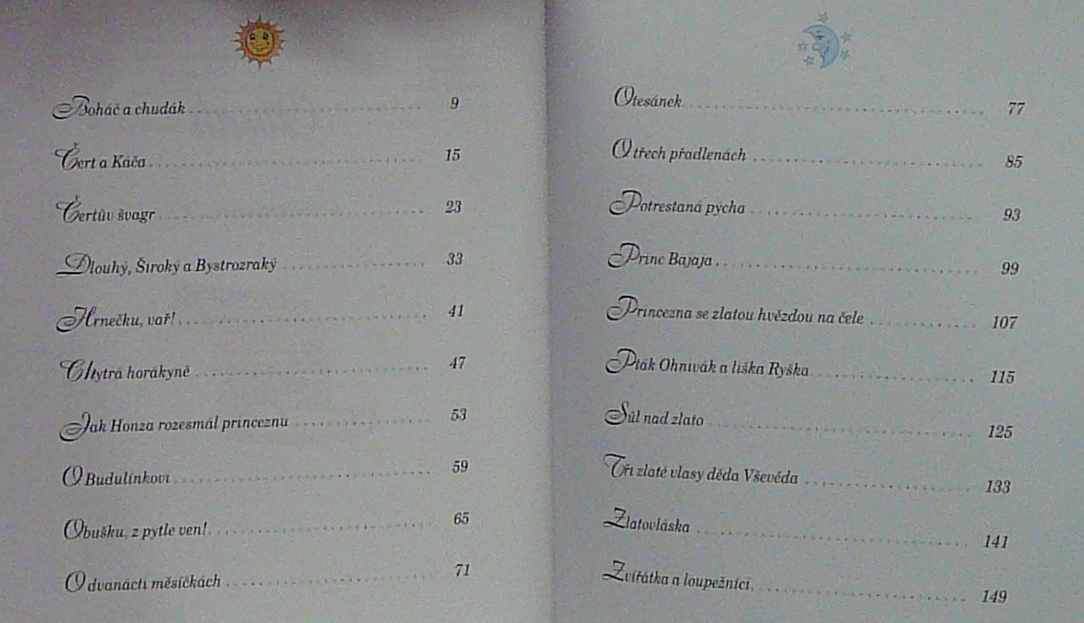 Boháč a chudák 9
Čert a Káča 15
Čertův švagr 23
Dlouhý, Široký a Bystrozraký 33
Hrnečku, vař! 41
Chytrá horákyně 47
Jak Honza rozesmál princeznu 53
O Budulínkovi 59
Obušku, z pytle ven! 65
O dvanácti měsíčkách 71
Otesánek 77
O třech přadlenách 85
Potrestaná pýcha 93
Princ Bajaja 99
Princezna se zlatou hvězdou na čele 107
Pták Ohnivák a liška Ryška 115
Sůl nad zlato 125
Tři zlaté vlasy děda Vševěda 133
Zlatovláska 141
Zvířátka a loupežníci 149